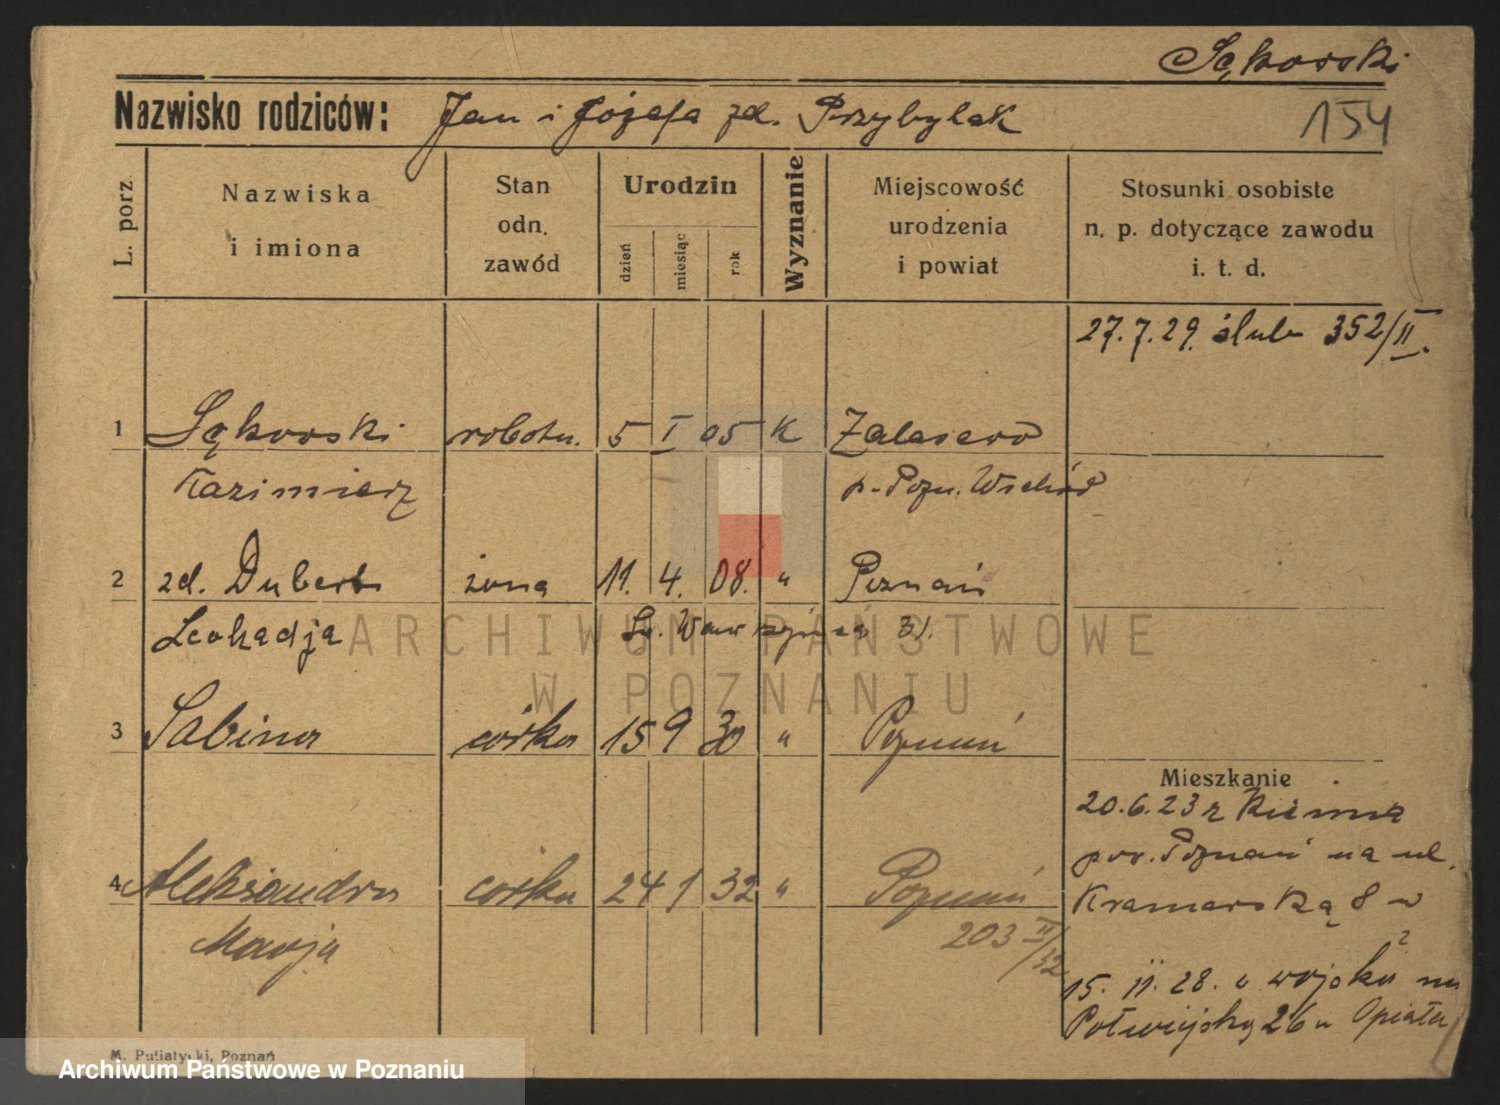 Sękowski
Nazwisko rodziców: Jan i Józefa zd. Przybylak
154
L. porz.
Nazwiska
i imiona
Stan
odn.
zawód
Urodzin
dzień
miesiąc
rok
Wyznanie
Miejscowość
urodzenia
i powiat
Stosunki osobiste
n. p. dotyczące zawodu
i. t. d.
27.7.29. ślub 352/II.
1 Sękowski robotn. 5 I 05 K Zalasewo
Kazimierz p. Pozn. Wschód
2 zd. Dubert żona 11. 4. 08. " Poznań
Leokadja Św. Wawrzyńca 31.
ARCHIWUM PAŃSTWOWE
W POZNANIU
3 Sabina córka 15 9 30 " Poznań
Mieszkanie
20.6.23 z
pow. Poznań na ul.
4 Aleksandra córka 24 1 32 " Poznań
Kramarską 8
Marja 203 II/32
15. 11. 28. z wojska na
Półwiejską 26 u
M. Putiatycki, Poznań
Archiwum Państwowe w Poznaniu